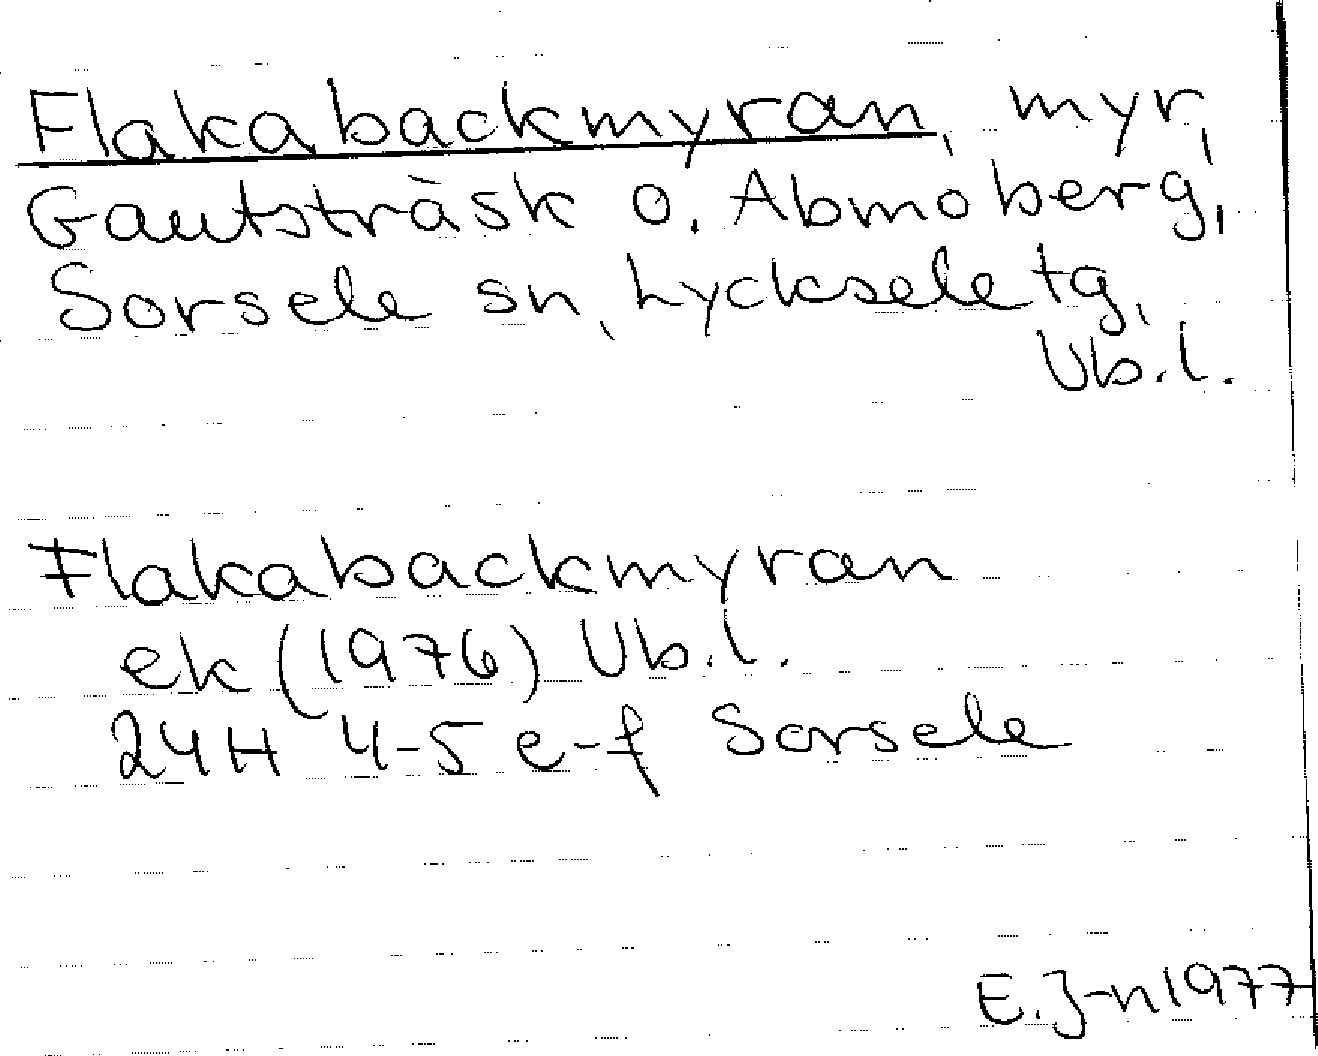 Flakabackmyran, myr,
Gautsträsk o. Abmoberg,
Sorsele sn, Lycksele tg,
Vb.l.
Flakabackmyran
ek (1976) Vb.l.
24H 4-5 e-f Sorsele
E. J-n 1977